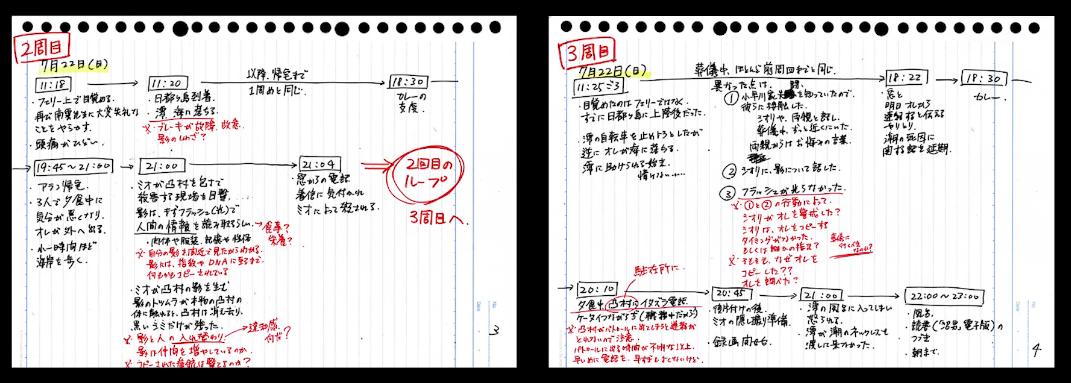 2周目
7月22日(日)
11:18
・フェリー上で目覚める。
再び南雲先生に大変失礼な
ことをやらかす。
頭痛がひどい。
11:20
・日都ヶ島到着
澪、海に落ちる。
※ブレーキが故障。故意。
影のしわざ?
以降、帰宅まで
1周めと同じ。
18:30
カレーの
支度。
19:45～21:00
アラン帰宅。
3人で夕食中に
気分が悪くなり、
オレが外へ出る。
小一時間ほど
海岸を歩く。
21:00
・ミオが凸村を包丁で
殺害する現場を目撃。
影は、まずフラッシュ(光)で
人間の情報を読み取るらしい。
→食事?
栄養?
・肉体や服装、記憶や性格
※自分の影を間近で見たからわかる。
影には、指紋やDNAに至るまで、
何もかもコピーされている
・ミオが凸村の影を生む
影のトツムラが本物の凸村の
体に触れると、凸村は消え去り、
黒いシミだけが残った。
※影と人の入れ替わり
→違和感
何だ?
影は仲間を増やしているのか
21:04
・窓からの電話
着信に気付かれ
ミオによって殺される。
2回目の
ループ
3周目へ。
3
3周目
7月22日(日)
11:25ごろ
・目覚めたのはフェリーではなく、
すでに日都ヶ島に上陸後だった。
・澪の自転車を止めようとしたが
逆にオレが海に落ちる。
澪に助けられる始末。
情けない……
葬儀中、ほとんど前周回までと同じ。
異なった点は、
① 小早川家を知っていたので、
彼らに接触した。
シオリや、両親と話し、
葬儀中、ずっと近くにいた。
両親からはお悔みの言葉
② シオリに、影について話した。
③ フラッシュが光らなかった。
※①と②の行動によって、
シオリがオレを警戒した?
シオリは、オレをコピーする
タイミングがなかった。
もしくは誰かの指示?
※そもそも、なぜオレを
コピーした??
オレを調べた?
18:22
・窓と
明日オレから
連絡すると伝える
やりとり。
潮の死因に
関する話を延期。
18:30
カレー。
駐在所に
20:10
夕食中、凸村にイタズラ電話。
ケータイつながらず(職務中だから)
※凸村がパトロールに出てしまうと連絡が
とれないので注意。
パトロールに出る時間が不明な以上、
早いめに電話を、早すぎてもいけないけど。
20:45
・片付けの後、
ミオの隠し撮り準備。
・録画開始
21:00
・澪の風呂に入ってしまい
怒られる。
・澪が潮のネックレスを
渡しに来なかった。
22:00～23:00
・風呂
・読書(38号、電子版)の
つづき
・朝まで。
4